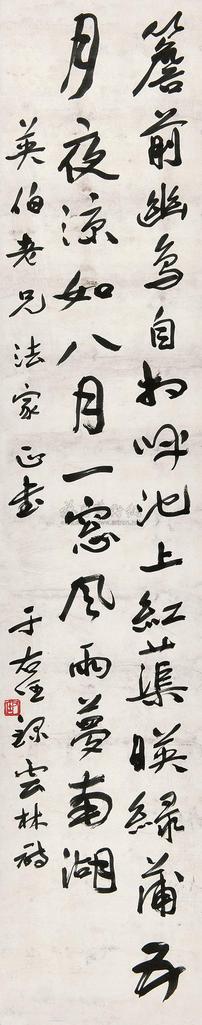 簷前幽鸟自相呼池上紅蕖暎綠蒲五
月夜凉如八月一窓风雨夢南湖
英伯老兄法家正書
于右任録雲林詩